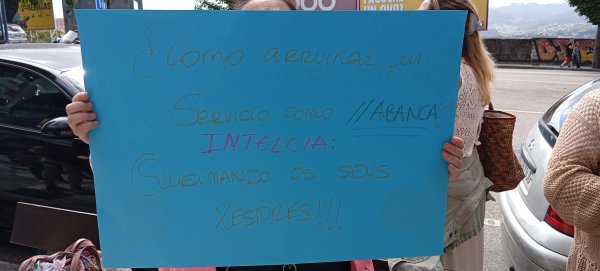 ¿Como arruinar un
Servicio como //ABANCA?
INTELCIA:
Queimando os seus
XESTORES!!!